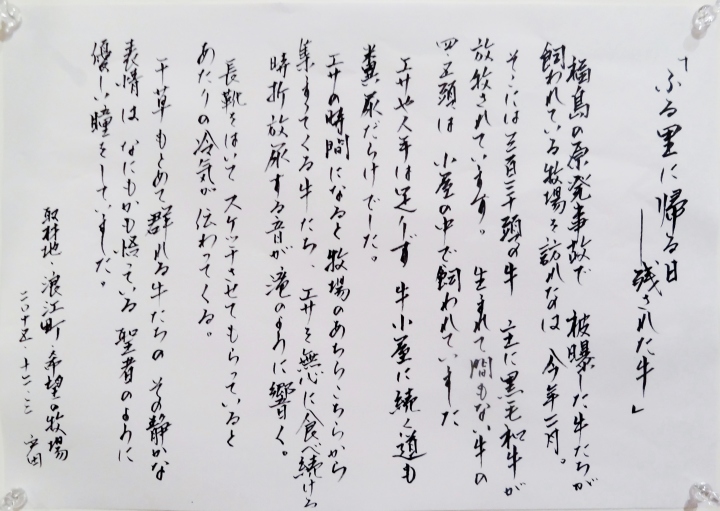 「ふる里に帰る日
――残された牛」
福島の原発事故で 被曝した牛たちが
飼われている牧場を訪れたのは 今年二月。
そこには三百三十頭の牛 主に黒毛和牛が
放牧されています。 生まれて間もない牛の
四五頭は 小屋の中で飼われていました
エサや人手は足りず 牛小屋に続く道も
糞尿だらけでした。
エサの時間になると牧場のあちらこちらから
集まってくる牛たち、エサを無心に食べ続ける
時折 放尿する音が滝のように響く。
長靴をはいて スケッチさせてもらっていると
あたりの冷気が 伝わってくる。
干草もとめて 群れる牛たちの その静かな
表情は なにもかも悟っている聖者のように
優しい瞳をしていました。
取材地 浪江町・希望の牧場
二〇十五 十二・二 戸田